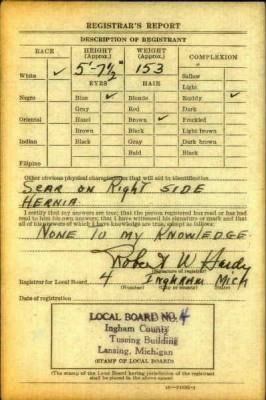 REGISTRAR'S REPORT
DESCRIPTION OF REGISTRANT
RACE HEIGHT (Approx.) WEIGHT (Approx.) COMPLEXION
White ✓ 5'-7½" 153 Sallow
EYES HAIR Light
Negro Blue ✓ Blonde Ruddy ✓
Gray Red Dark
Oriental Hazel Brown ✓ Freckled
Brown Black Light brown
Indian Black Gray Dark brown
Bald Black
Filipino
Other obvious physical characteristics that will aid in identification
SCAR ON Right SIDE
HERNIA.
I certify that my answers are true; that the person registered has read or has had
read to him his own answers; that I have witnessed his signature or mark and that
all of his answers of which I have knowledge are true, except as follows:
NONE TO MY KNOWLEDGE
Robert W Hardy
(Signature of registrar)
Registrar for Local Board 4 INGHAM MICH
(Number) (City or county) (State)
Date of registration
LOCAL BOARD NO. 4
Ingham County
Tussing Building
Lansing, Michigan
(STAMP OF LOCAL BOARD)
(The stamp of the Local Board having jurisdiction of the registrant